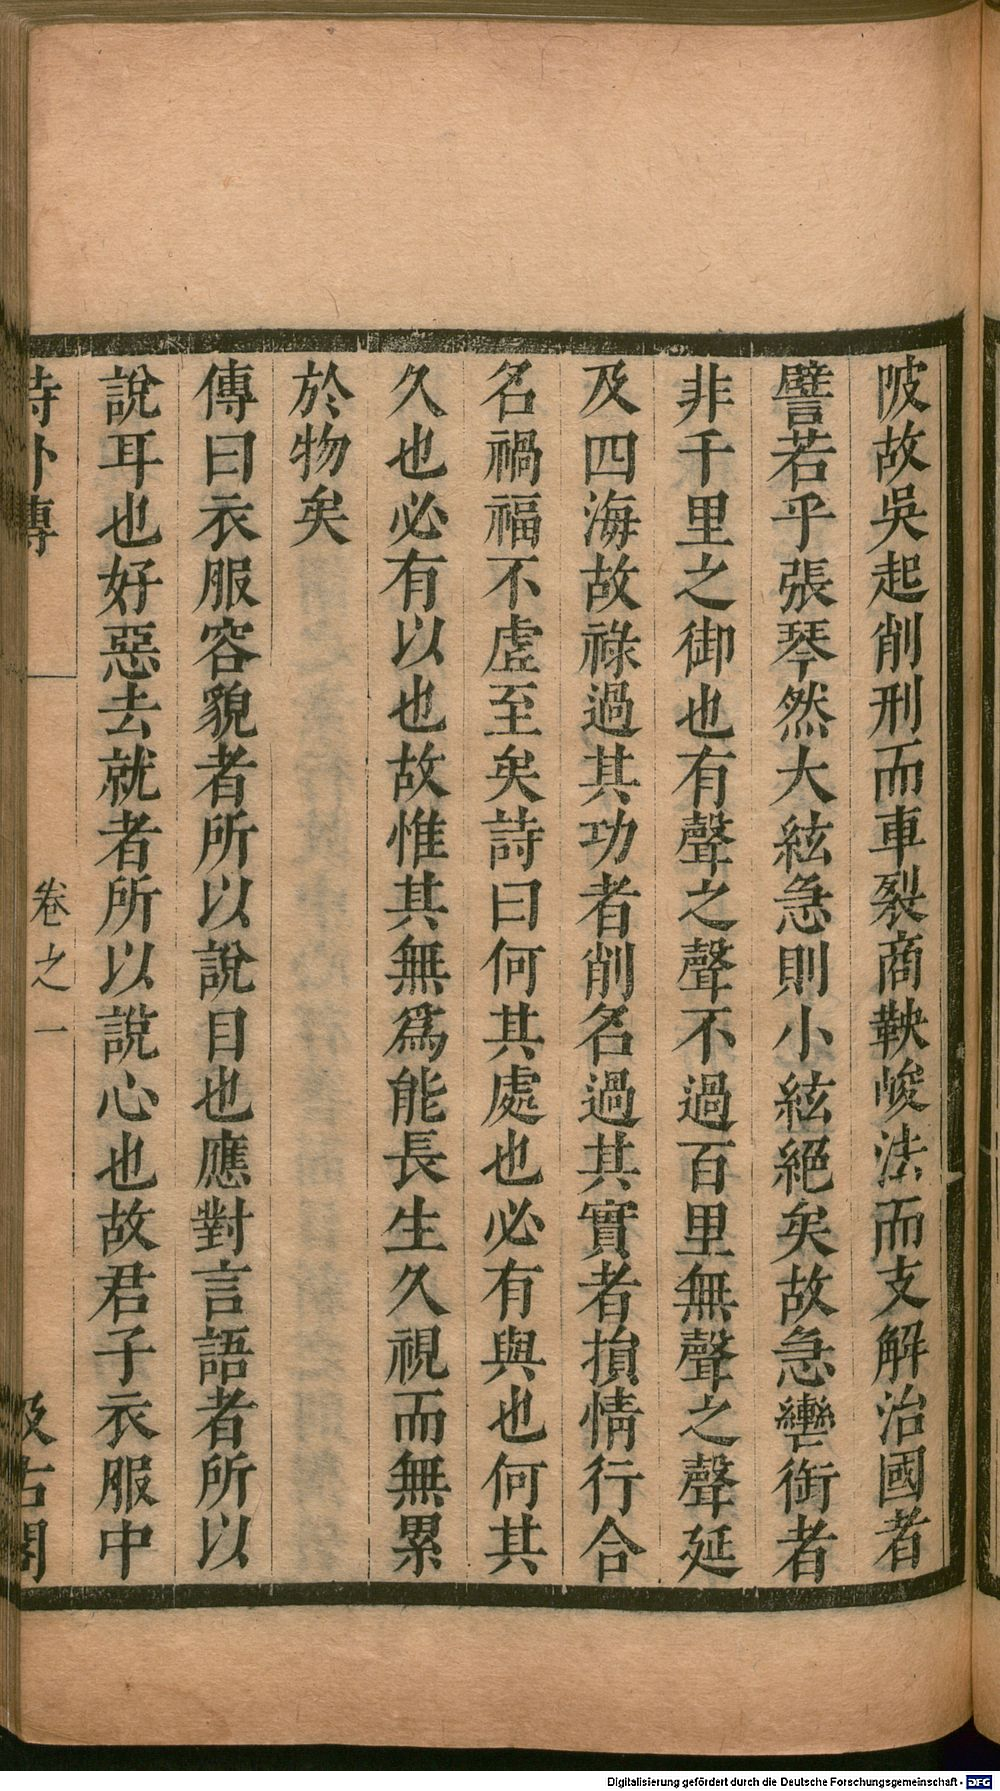 陂故吳起削刑而車裂商鞅峻法而支解治國者
譬若乎張琴然大絃急則小絃絕矣故急轡銜者
非千里之御也有聲之聲不過百里無聲之聲延
及四海故祿過其功者削名過其實者損情行合
名禍福不虛至矣詩曰何其處也必有與也何其
久也必有以也故惟其無爲能長生久視而無累
於物矣
傳曰衣服容貌者所以說目也應對言語者所以
說耳也好惡去就者所以說心也故君子衣服中
詩外傳
卷之一
汲古閣
Digitalisierung gefördert durch die Deutsche Forschungsgemeinschaft - DFG